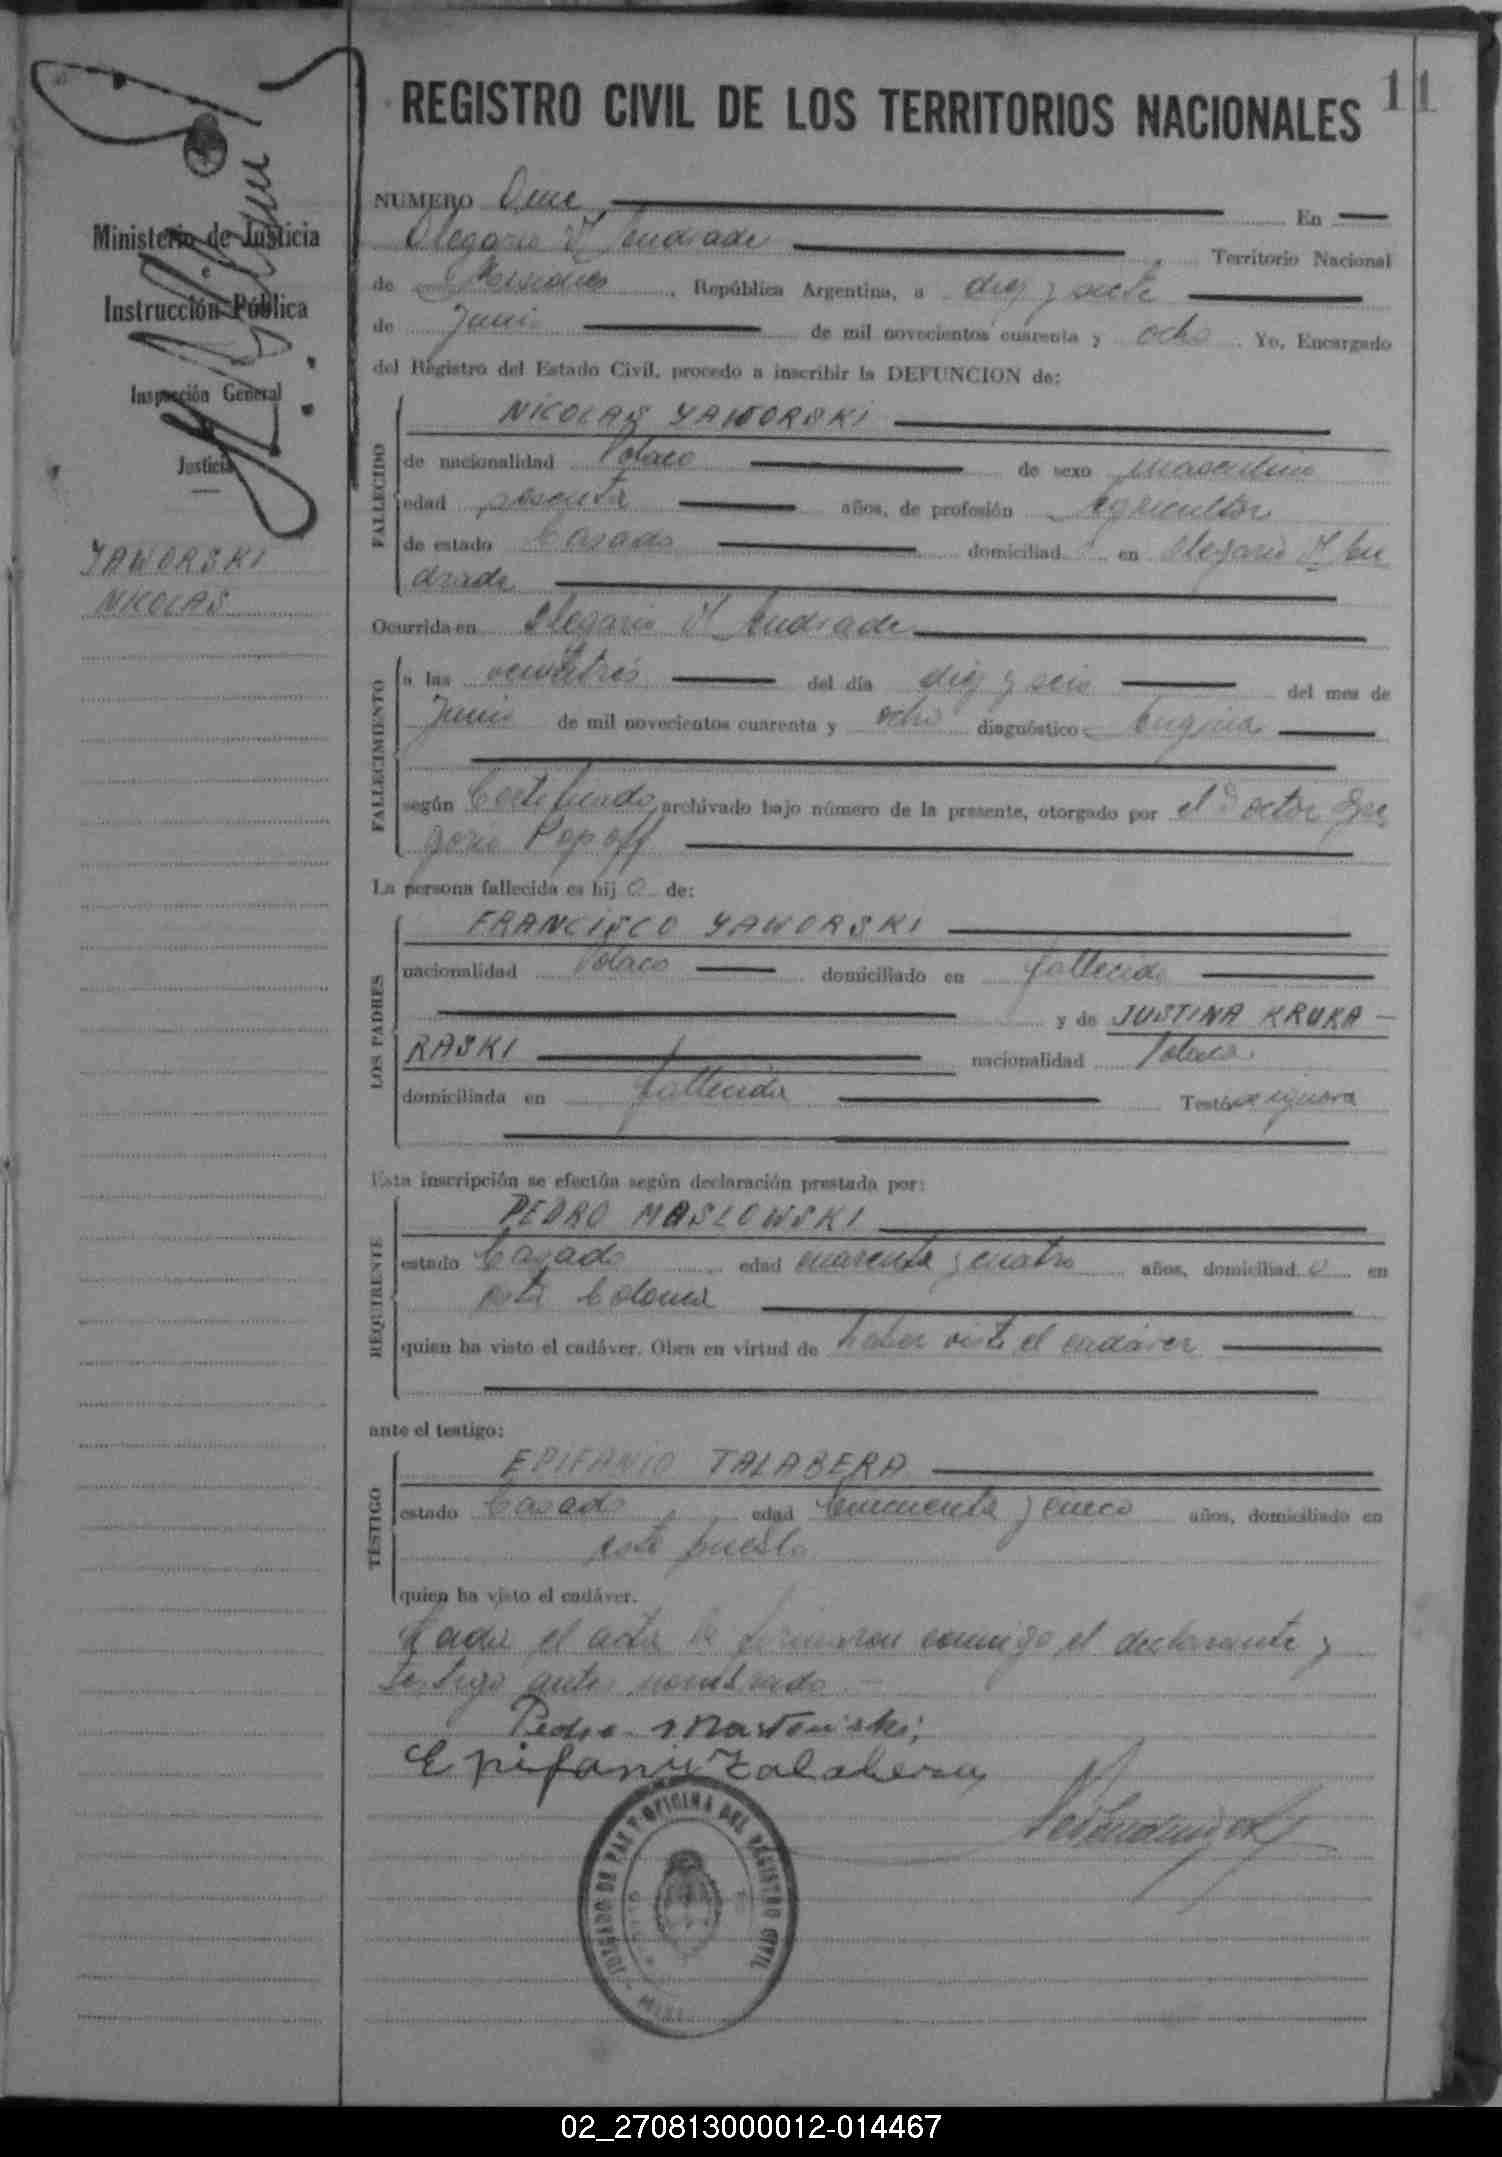 11
REGISTRO CIVIL DE LOS TERRITORIOS NACIONALES
Ministerio de Justicia
e
Instrucción Pública
Inspección General
Justicia
YAWORSKI
NICOLAS
NUMERO Once En
Olegario V Andrade Territorio Nacional
de Misiones, República Argentina, a diez y siete
de Junio de mil novecientos cuarenta y ocho. Yo, Encargado
del Registro del Estado Civil, procedo a inscribir la DEFUNCION de:
FALLECIDO
NICOLAS YAWORSKI
de nacionalidad Polaco de sexo masculino
edad sesenta años, de profesión Agricultor
de estado Casado domiciliad o en Olegario V An
drade
Ocurrida en Olegario V Andrade
FALLECIMIENTO
a las veintitrés del día diez y seis del mes de
Junio de mil novecientos cuarenta y ocho diagnóstico Angina
según Certificado archivado bajo número de la presente, otorgado por el Doctor Gre
gorio Popoff
La persona fallecida es hij o de:
LOS PADRES
FRANCISCO YAWORSKI
nacionalidad Polaco domiciliado en fallecido
y de JUSTINA KRUKA-
RASKI nacionalidad Polaca
domiciliada en fallecida Testó se ignora
Esta inscripción se efectúa según declaración prestada por:
REQUIRENTE
PEDRO MASLOWSKI
estado Casado edad cuarenta y cuatro años, domiciliad o en
esta Colonia
quien ha visto el cadáver. Obra en virtud de haber visto el cadáver
ante el testigo:
TESTIGO
EPIFANIO TALABERA
estado Casado edad Cincuenta y cinco años, domiciliado en
este pueblo
quien ha visto el cadáver.
Leida el acta la firmaron conmigo el declarante y
testigo antes nombrado.-
Pedro
Epifanio Talabera
JUZGADO DE PAZ Y OFICINA DEL REGISTRO CIVIL
02_270813000012-014467